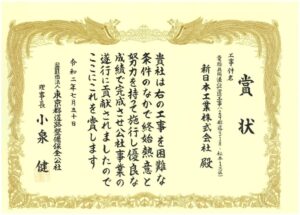 賞状
工事件名
新日本工業株式会社 殿
貴社は右の工事を困難な
条件のなかで終始熱意と
努力を持って施行し優良な
成績で完成させ公社事業の
遂行に貢献されましたので
ここにこれを賞します
令和二年七月五十日
公益財団法人東京都道路整備保全公社
理事長 小泉 健